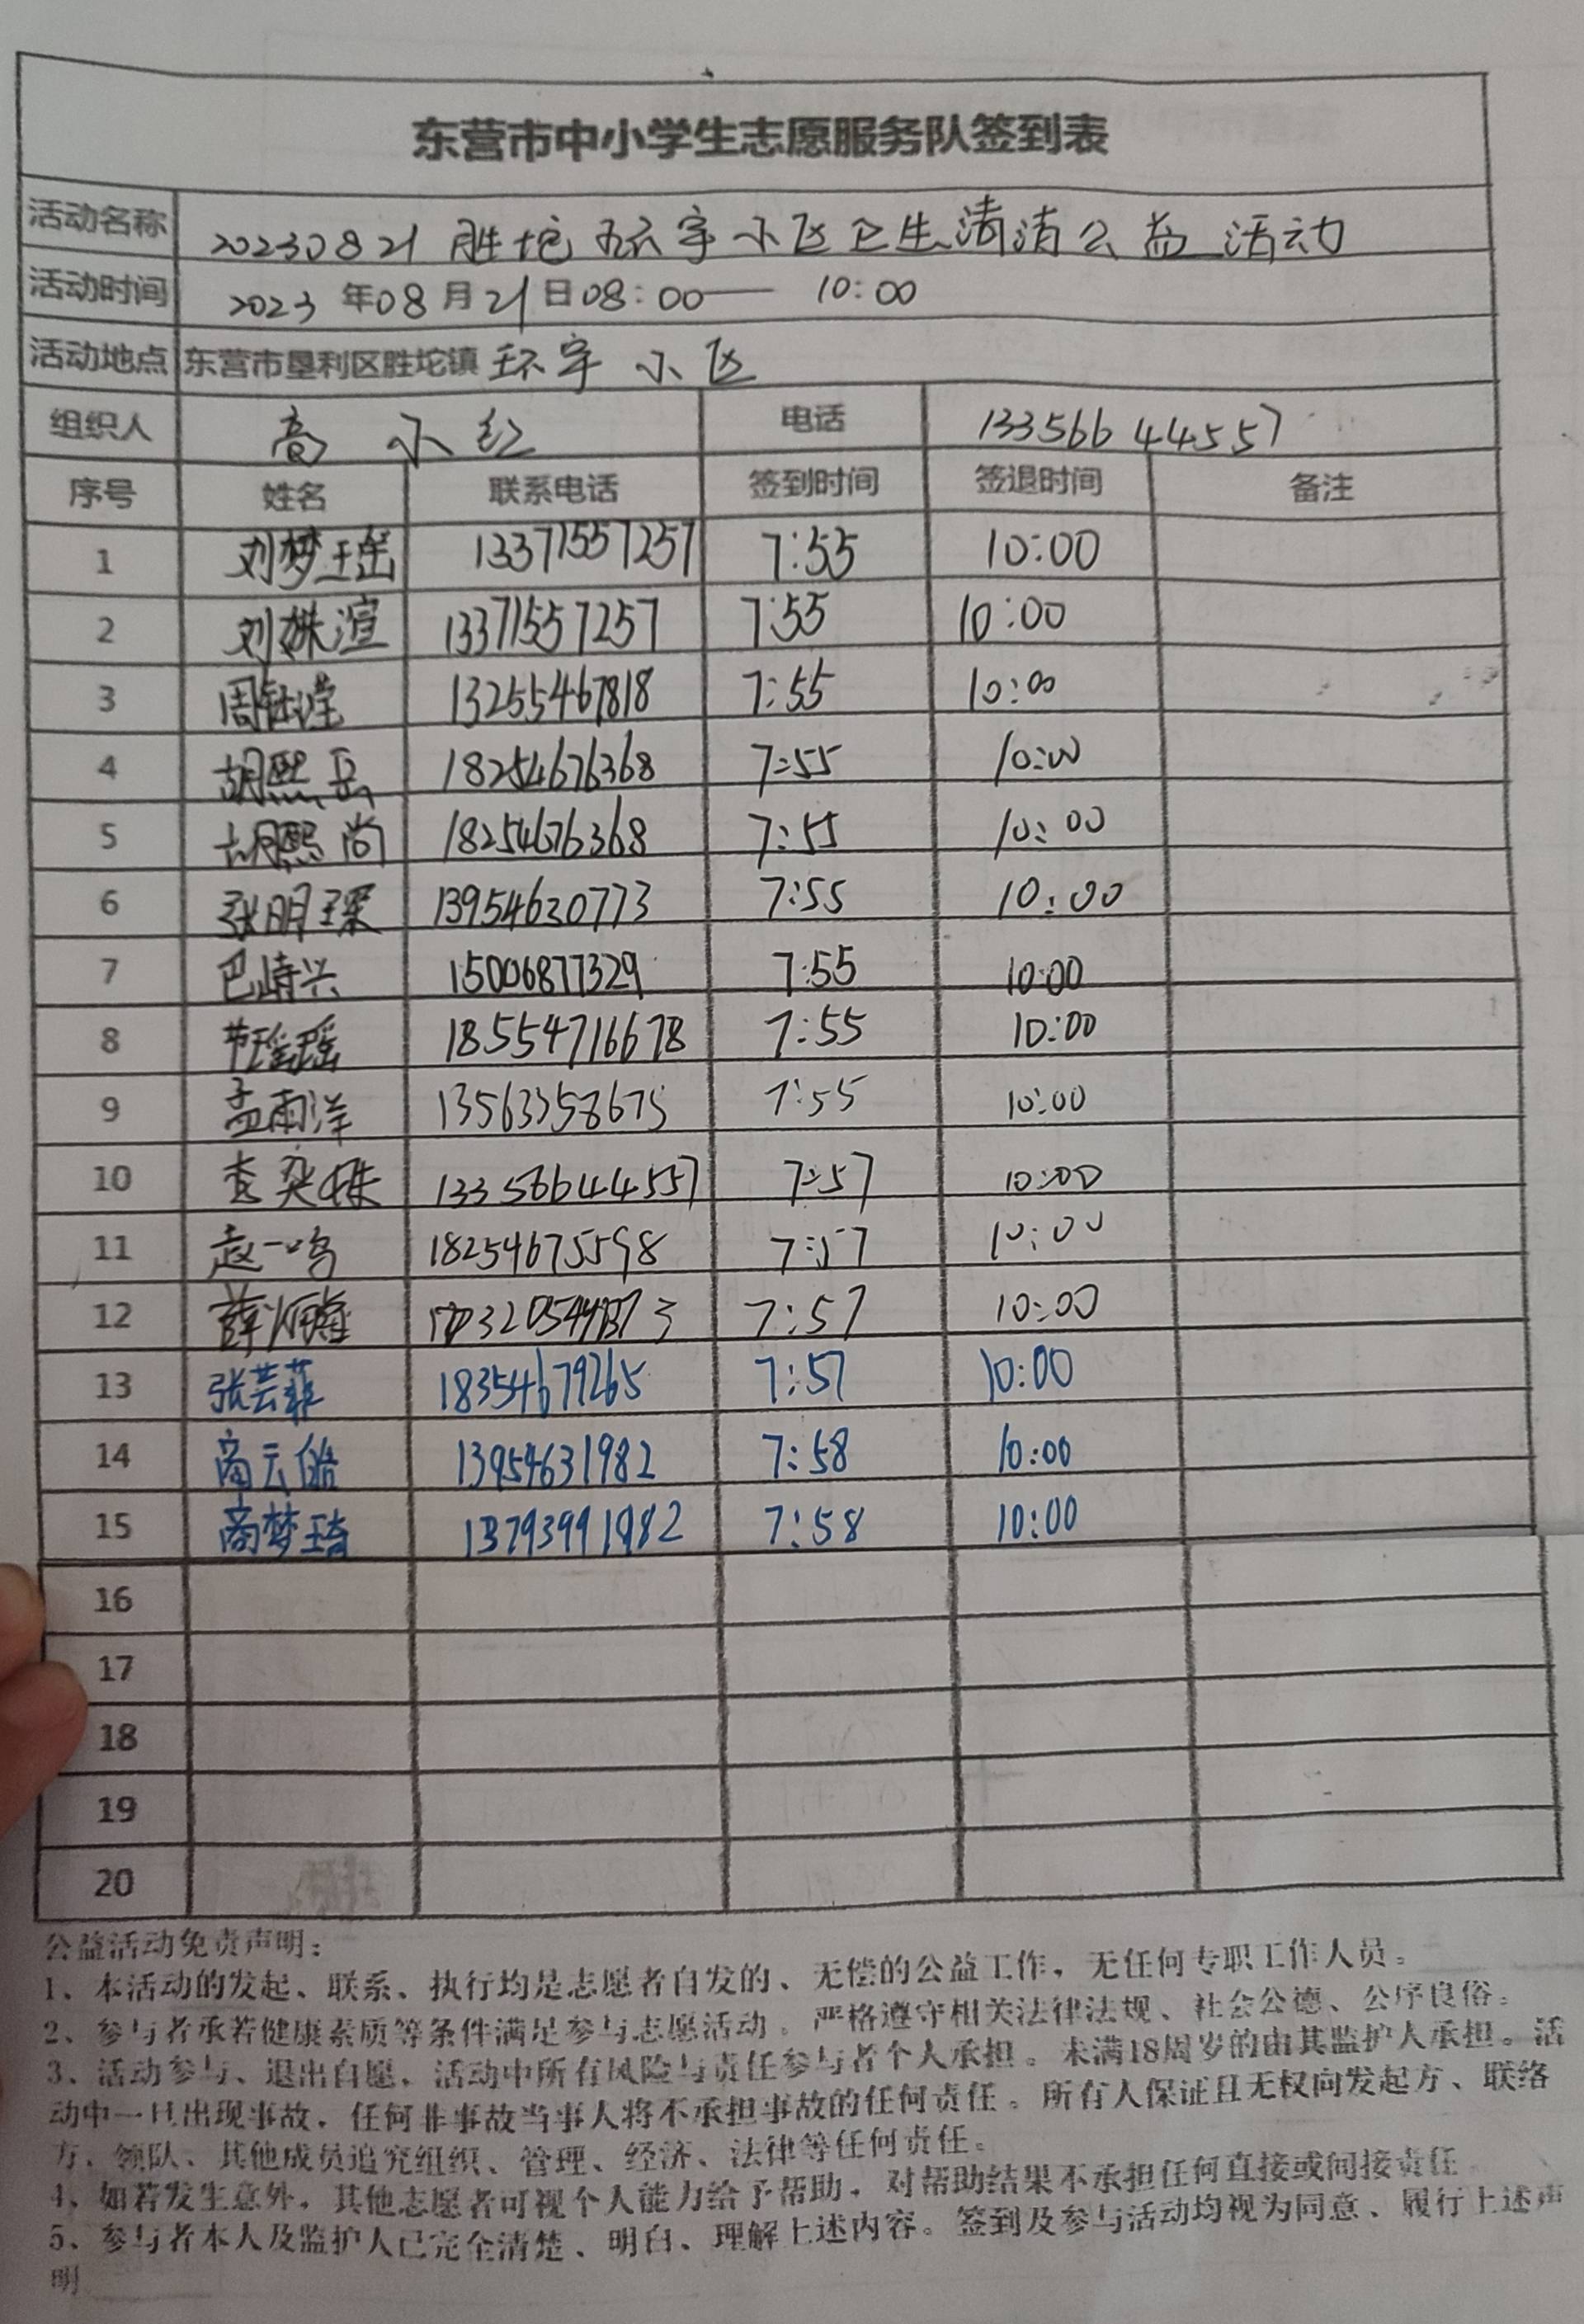 东营市中小学生志愿服务队签到表
活动名称 20230821 胜坨环宇小区卫生清洁公益活动
活动时间 2023年08月21日08:00— 10:00
活动地点 东营市垦利区胜坨镇 环宇小区
组织人 高小红 电话 13356644557
序号 姓名 联系电话 签到时间 签退时间 备注
1 刘梦瑶 13371557257 7:55 10:00
2 刘姝渲 13371557257 7:55 10:00
3 周钰滢 13255467818 7:55 10:00
4 胡熙岳 18254676368 7:55 10:00
5 胡熙尚 18254676368 7:55 10:00
6 张明琛 13954630773 7:55 10:00
7 巴崎兴 15006877329 7:55 10:00
8 节瑶瑶 18554716678 7:55 10:00
9 孟雨洋 13563358675 7:55 10:00
10 查奕姝 13356644557 7:57 10:00
11 赵一鸣 18254675598 7:57 10:00
12 薛 7:57 10:00
13 张芸菲 18354679265 7:57 10:00
14 商云皓 13954631982 7:58 10:00
15 商梦琦 13793991982 7:58 10:00
16
17
18
19
20
公益活动免责声明：
1、本活动的发起、联系、执行均是志愿者自发的、无偿的公益工作，无任何专职工作人员。
2、参与者承若健康素质等条件满足参与志愿活动。严格遵守相关法律法规、社会公德、公序良俗。
3、活动参与、退出自愿，活动中所有风险与责任参与者个人承担。未满18周岁的由其监护人承担。活
动中一旦出现事故，任何非事故当事人将不承担事故的任何责任。所有人保证且无权向发起方、联络
方、领队、其他成员追究组织、管理、经济、法律等任何责任。
4、如若发生意外，其他志愿者可视个人能力给予帮助，对帮助结果不承担任何直接或间接责任
5、参与者本人及监护人已完全清楚、明白、理解上述内容。签到及参与活动均视为同意、履行上述声
明